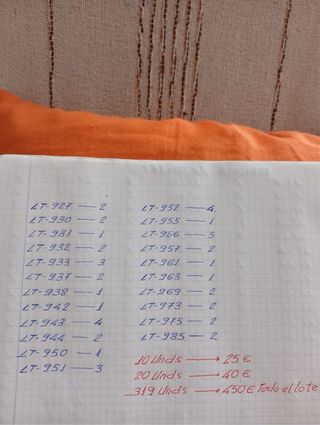 LT-927 — 2
LT-930 — 2
LT-931 — 1
LT-932 — 2
LT-933 — 3
LT-937 — 2
LT-938 — 1
LT-942 — 1
LT-943 — 4
LT-944 — 2
LT-950 — 1
LT-951 — 3
LT-952 — 4
LT-955 — 1
LT-956 — 3
LT-957 — 2
LT-961 — 1
LT-963 — 1
LT-969 — 2
LT-973 — 2
LT-975 — 2
LT-985 — 2
10 Unds → 25 €
20 Unds → 40 €
319 Unds → 450 € Todo el lote